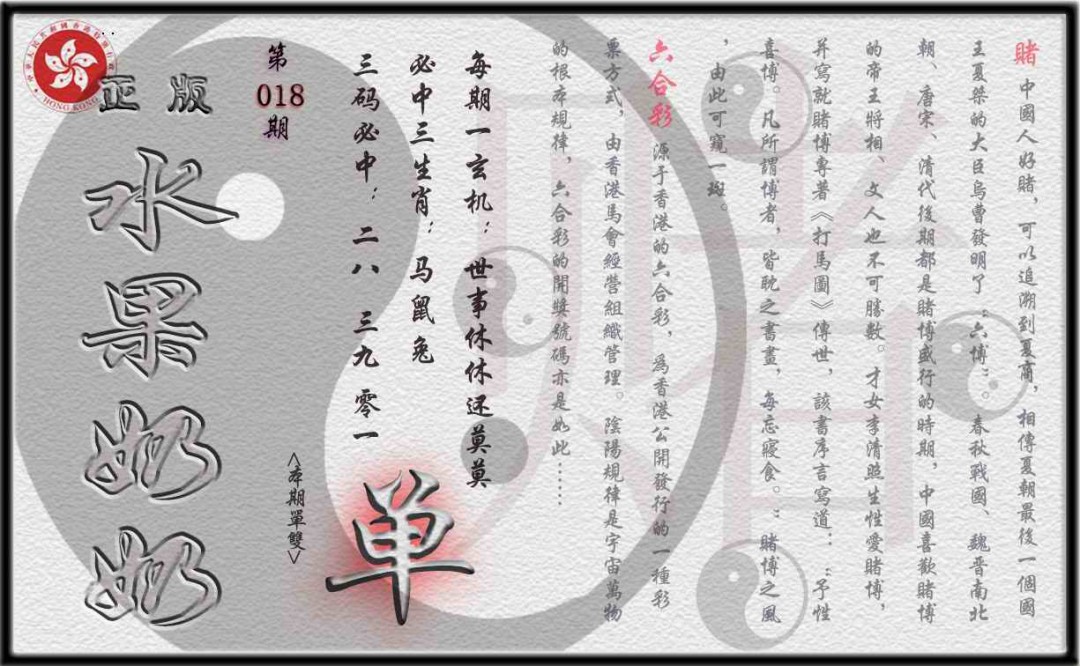 賭 中國人好賭，可以追溯到夏商，相傳夏朝最後一個國
王夏桀的大臣烏曹發明了“六博”。春秋戰國、魏晉南北
朝、唐宋、清代後期都是賭博盛行的時期，中國喜歡賭博
的帝王將相、文人也不可勝數。才女李清照生性愛賭博，
并寫就賭博專著《打馬圖》傳世，該書序言寫道：“予性
喜博。凡所謂博者，皆耽之書畫，每忘寢食。”賭博之風
，由此可窺一斑。
六合彩 源于香港的六合彩，爲香港公開發行的一種彩
票方式，由香港馬會經營組織管理。陰陽規律是宇宙萬物
的根本規律，六合彩的開獎號碼亦是如此……
每期一玄机：世事休休还莫莫
必中三生肖：马鼠兔
三码必中：二八 三九 零一
单
<本期單雙>
第
018
期
正版
水果奶奶
HONG KONG